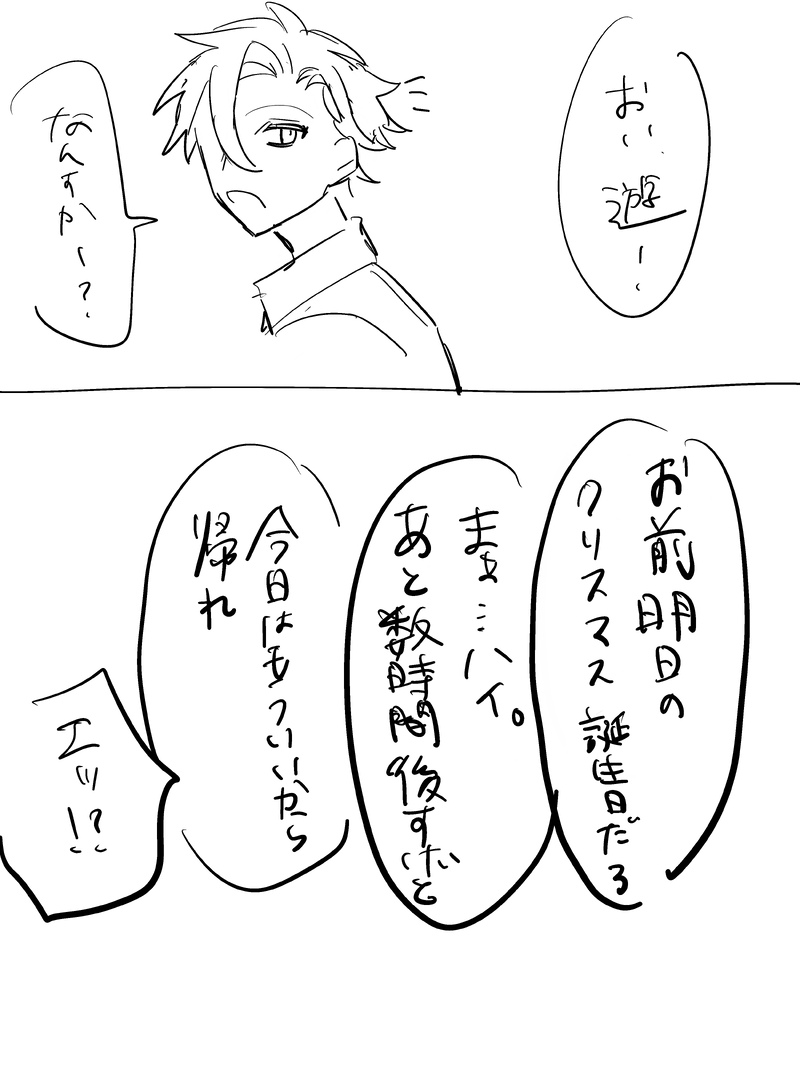 おい
遊ー!
なんすかー?
お前明日の
クリスマス 誕生日だろ
まぁ…ハイ。
あと数時間後すけど
今日はもういいから
帰れ
エッ!?